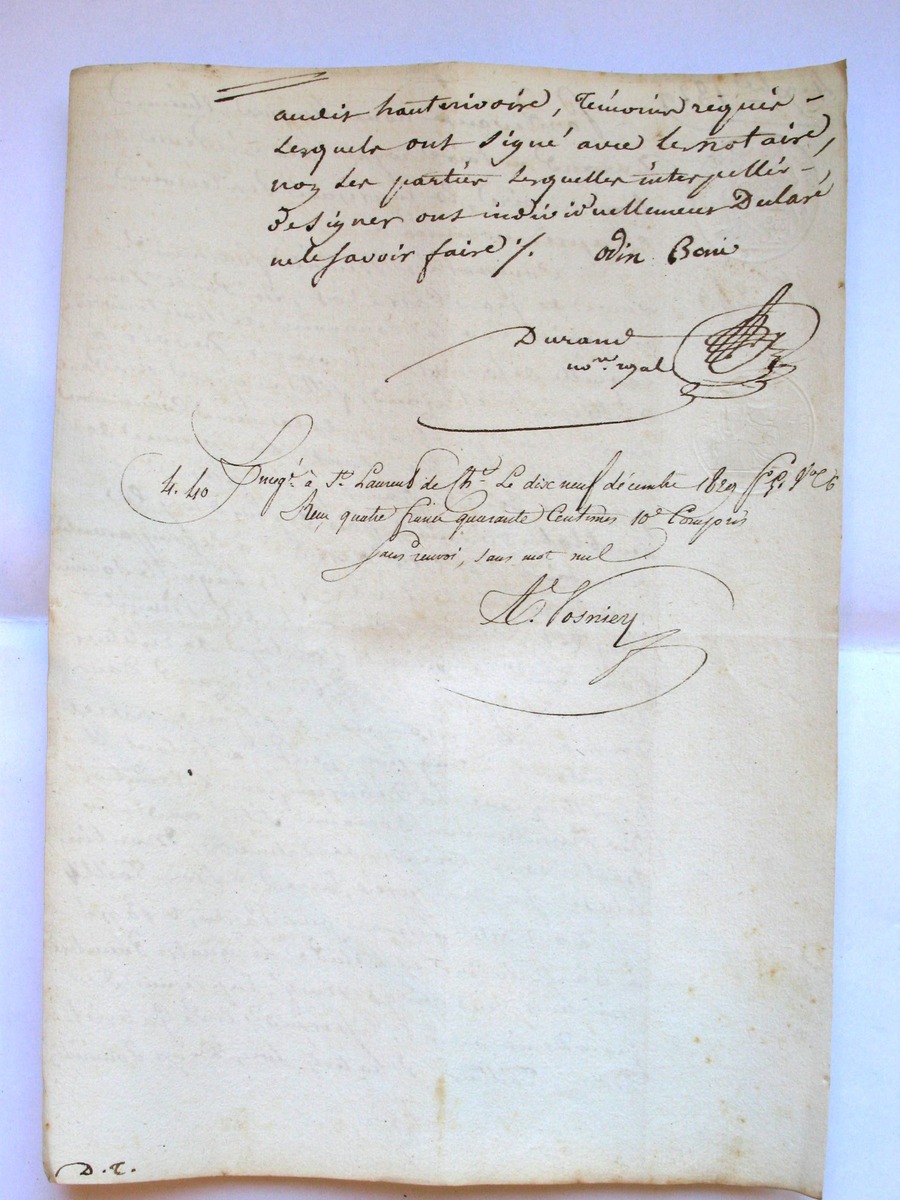 audit hauterivoire, témoins requis -
lesquels ont signé avec le notaire,
non les parties lesquelles interpellés -
de signer ont individuellement déclaré
ne le savoir faire ./. odin Boni
Durand
no.re royal
4. 40 Enreg.t à St. Laurent de Ch.t Le dix neuf décembre 1829 f.o
Reçu quatre francs quarante Centimes 10e Compris
sans renvoi, sans mot nul
D. T.